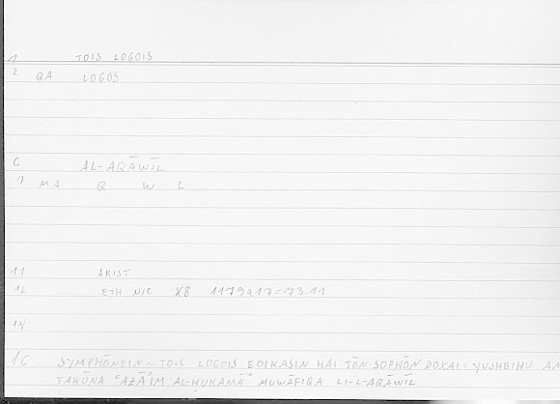 1 TOIS LOGOIS
2 QA LOGOS
C AL-AQĀWĪL
1 MA Q W L
11 ARIST
12 ETH NIC X8 1179a17=73.11
14
16 SYMPHŌNEIN - TOIS LOGOIS EOIKASIN HAI TŌN SOPHŌN DOXAI = YUSHBIHU AN
TAKŪNA "AZĀ'IM AL-HUKAMĀ" MUWĀFIQA LI-L-AQĀWĪL